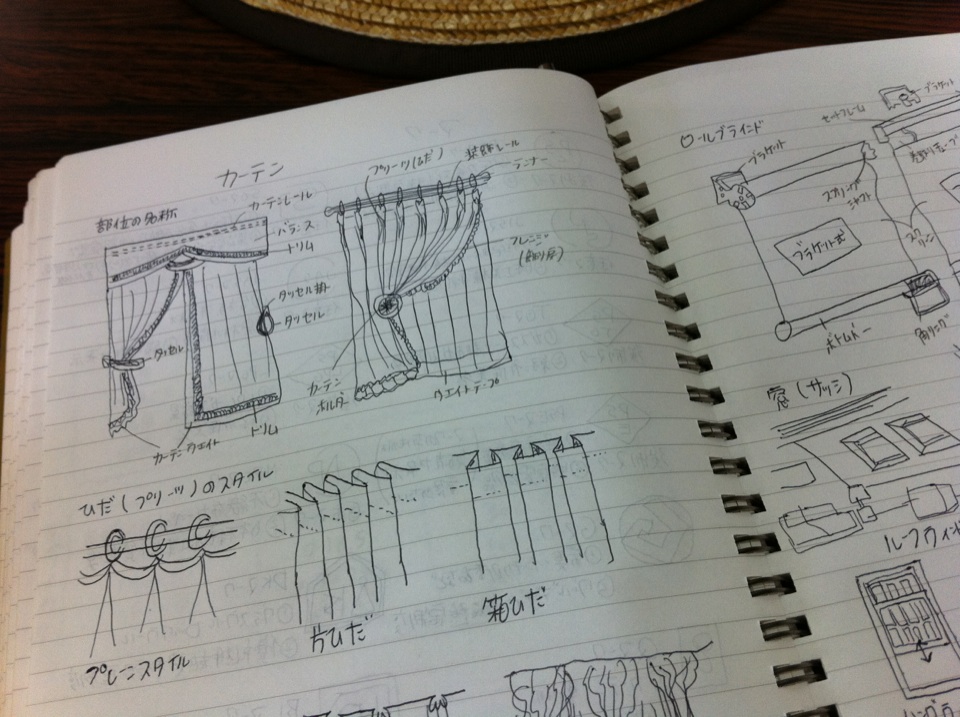 カーテン
部位の名称
カーテンレール
バランス
トリム
タッセル掛
タッセル
タッセル
カーテンウエイト
トリム
プリーツ(ひだ)
装飾レール
ランナー
フレンジ
カーテン
ホルダー
ウエイトテープ
ひだ(プリーツ)のスタイル
プレーンスタイル
片ひだ
箱ひだ
ロールブラインド
ブラケット
セットフレーム
ブラケット
スプリング
シャフト
スクリーン
ブラケット式
ボトムバー
窓(サッシ)